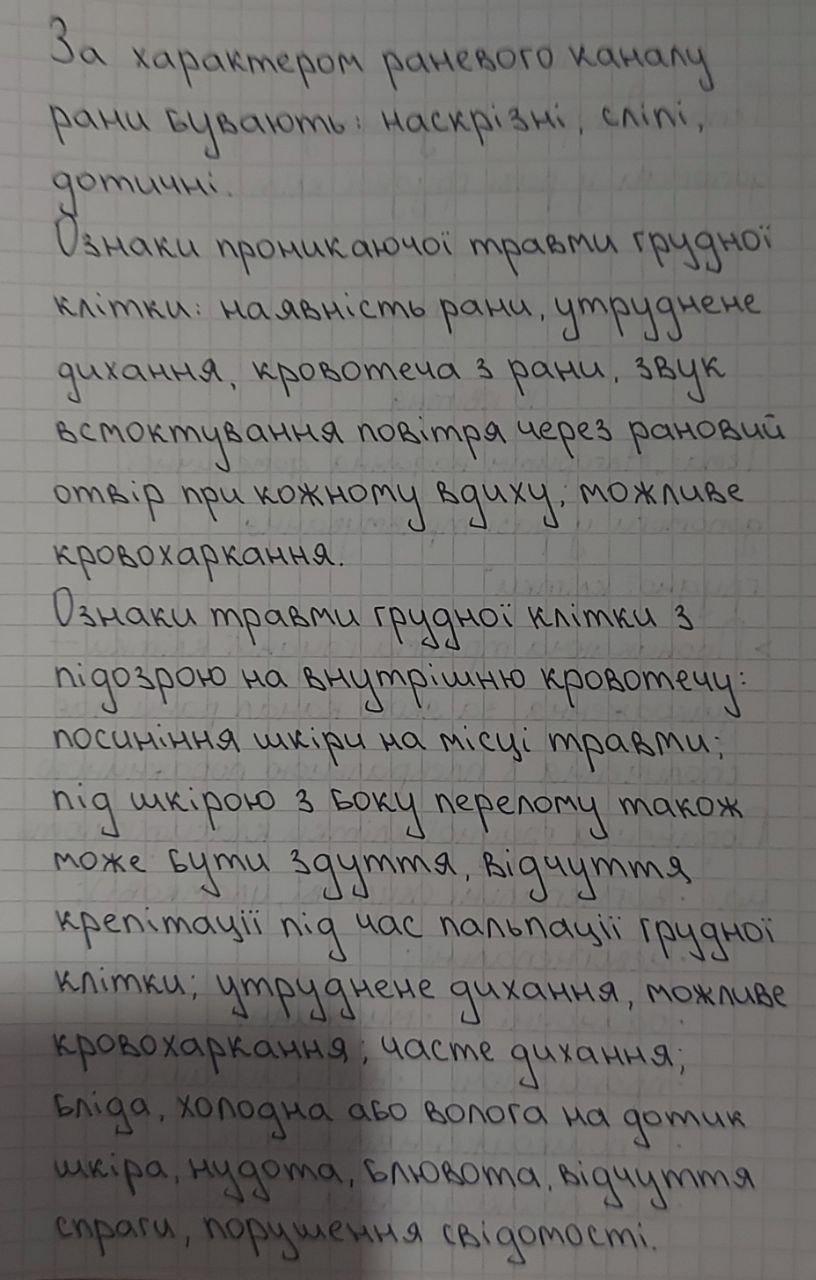 За характером раневого каналу
рани бувають: наскрізні, сліпі,
дотичні.
Ознаки проникаючої травми грудної
клітки: наявність рани, утруднене
дихання, кровотеча з рани, звук
всмоктування повітря через рановий
отвір при кожному вдиху; можливе
кровохаркання.
Ознаки травми грудної клітки з
підозрою на внутрішню кровотечу:
посиніння шкіри на місці травми;
під шкірою з боку перелому також
може бути здуття, відчуття
крепітації під час пальпації грудної
клітки; утруднене дихання, можливе
кровохаркання; часте дихання;
бліда, холодна або волога на дотик
шкіра, нудота, блювота, відчуття
спраги, порушення свідомості.